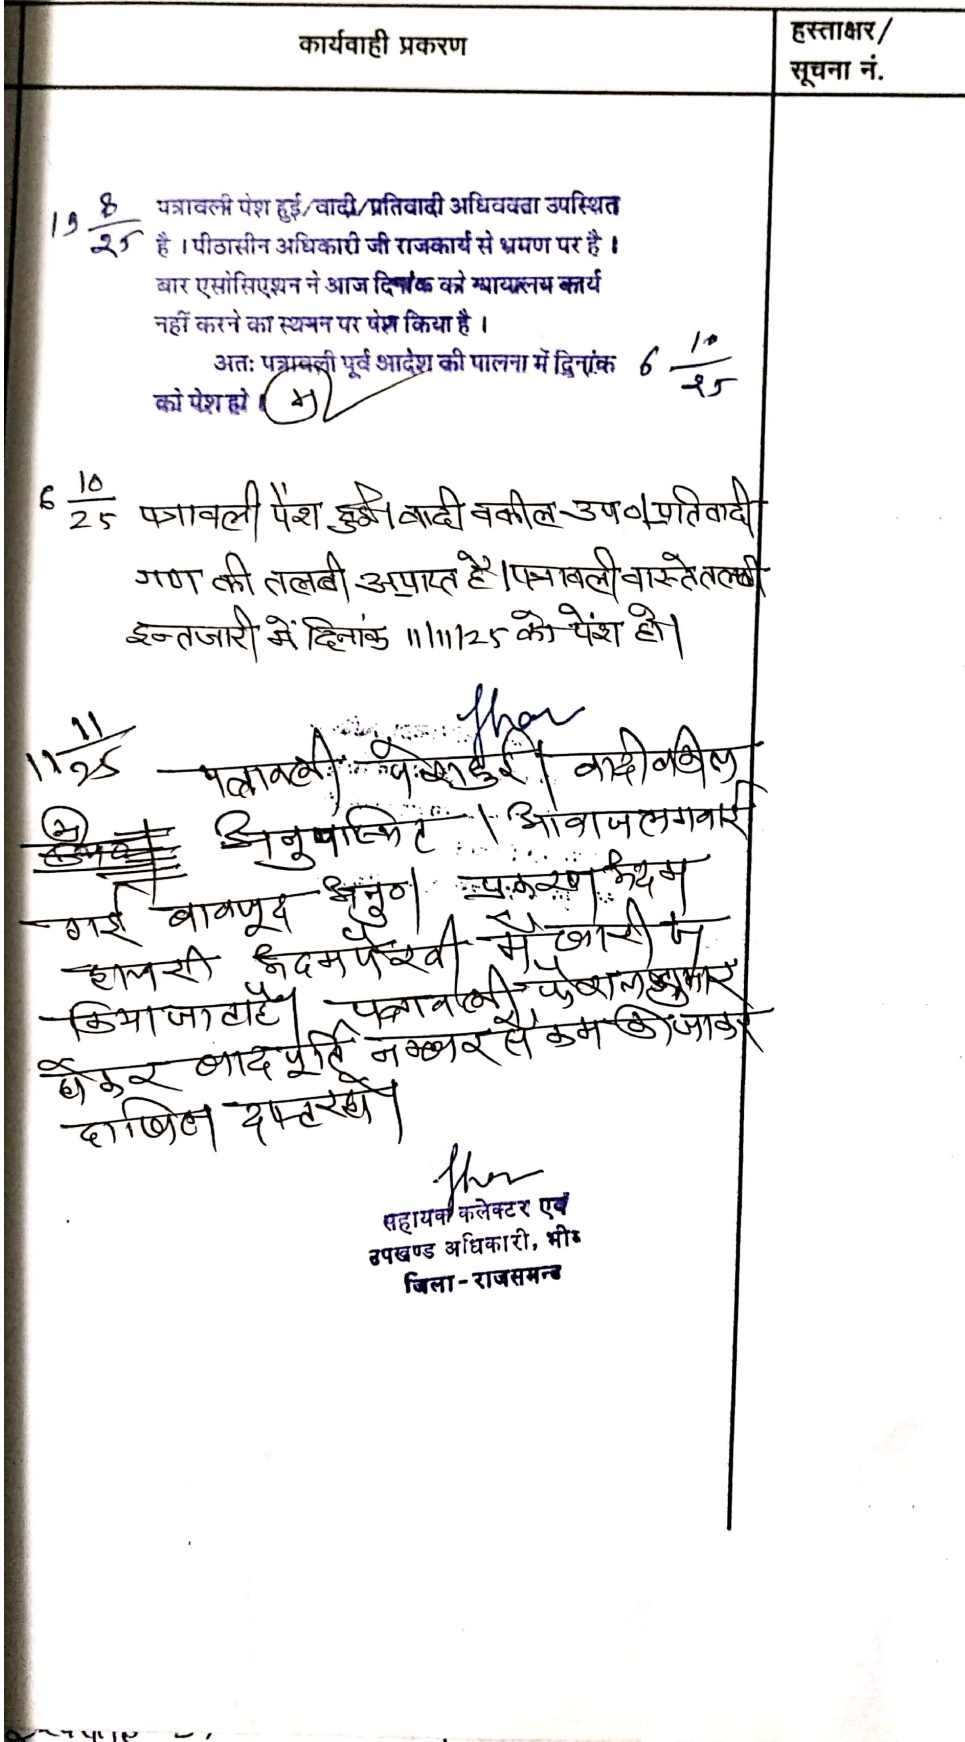 कार्यवाही प्रकरण
हस्ताक्षर/
सूचना नं.
19 8/25 पत्रावली पेश हुई/वादी/प्रतिवादी अधिवक्ता उपस्थित
है । पीठासीन अधिकारी जी राजकार्य से भ्रमण पर है ।
बार एसोसिएशन ने आज दिनांक को न्यायालय कार्य
नहीं करने का स्थगन पर पेश किया है ।
अतः पत्रावली पूर्व आदेश की पालना में दिनांक 6 10/25
को पेश हो ।
6 10/25 पत्रावली पेश हुई। वादी वकील उप०। प्रतिवादी
गण की तलबी अप्राप्त है। पत्रावली वास्ते तलबी
इन्तजारी में दिनांक 11/11/25 को पेंश हो।
11 11/25 पत्रावली पेश हुई। वादी वकिल
अनुपस्थित । आवाज लगवाई
गई बावजूद अनु०। प्रकरण अदम
हाजरी अदम पैरवी में खारीज
किया जाता है। पत्रावली फैसल शुमार
होकर बाद पूर्ति नम्बर से कम की जाकर
दाखिल दफ्तर हो।
सहायक कलेक्टर एवं
उपखण्ड अधिकारी, भीम
जिला - राजसमन्द